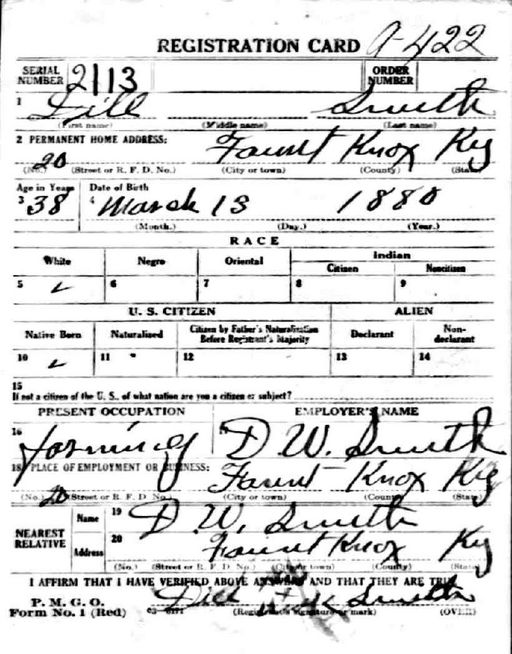 REGISTRATION CARD A-422
SERIAL NUMBER 2113 ORDER NUMBER
1 Dill Smith
(First name) (Middle name) (Last name)
2 PERMANENT HOME ADDRESS:
20 Faunt Knox Ky
(No.) (Street or R. F. D. No.) (City or town) (County) (State)
Age in Years Date of Birth
3 38 4 March 13 1880
(Month.) (Day.) (Year.)
RACE
White Negro Oriental Indian
Citizen Noncitizen
5 ✓ 6 7 8 9
U. S. CITIZEN ALIEN
Native Born Naturalized Citizen by Father's Naturalization Before Registrant's Majority Declarant Non-declarant
10 ✓ 11 " 12 13 14
15
If not a citizen of the U. S., of what nation are you a citizen or subject?
PRESENT OCCUPATION EMPLOYER'S NAME
16 farming D. W. Smith
18 PLACE OF EMPLOYMENT OR BUSINESS:
20 Faunt Knox Ky
(No.) (Street or R. F. D. No.) (City or town) (County) (State)
NEAREST RELATIVE Name 19 D. W. Smith
Address 20 Faunt Knox Ky
(No.) (Street or R. F. D. No.) (City or town) (County) (State)
I AFFIRM THAT I HAVE VERIFIED ABOVE ANSWERS AND THAT THEY ARE TRUE
P. M. G. O.
Form No. 1 (Red) Dill Smith
(Registrant's signature or mark) (OVER)